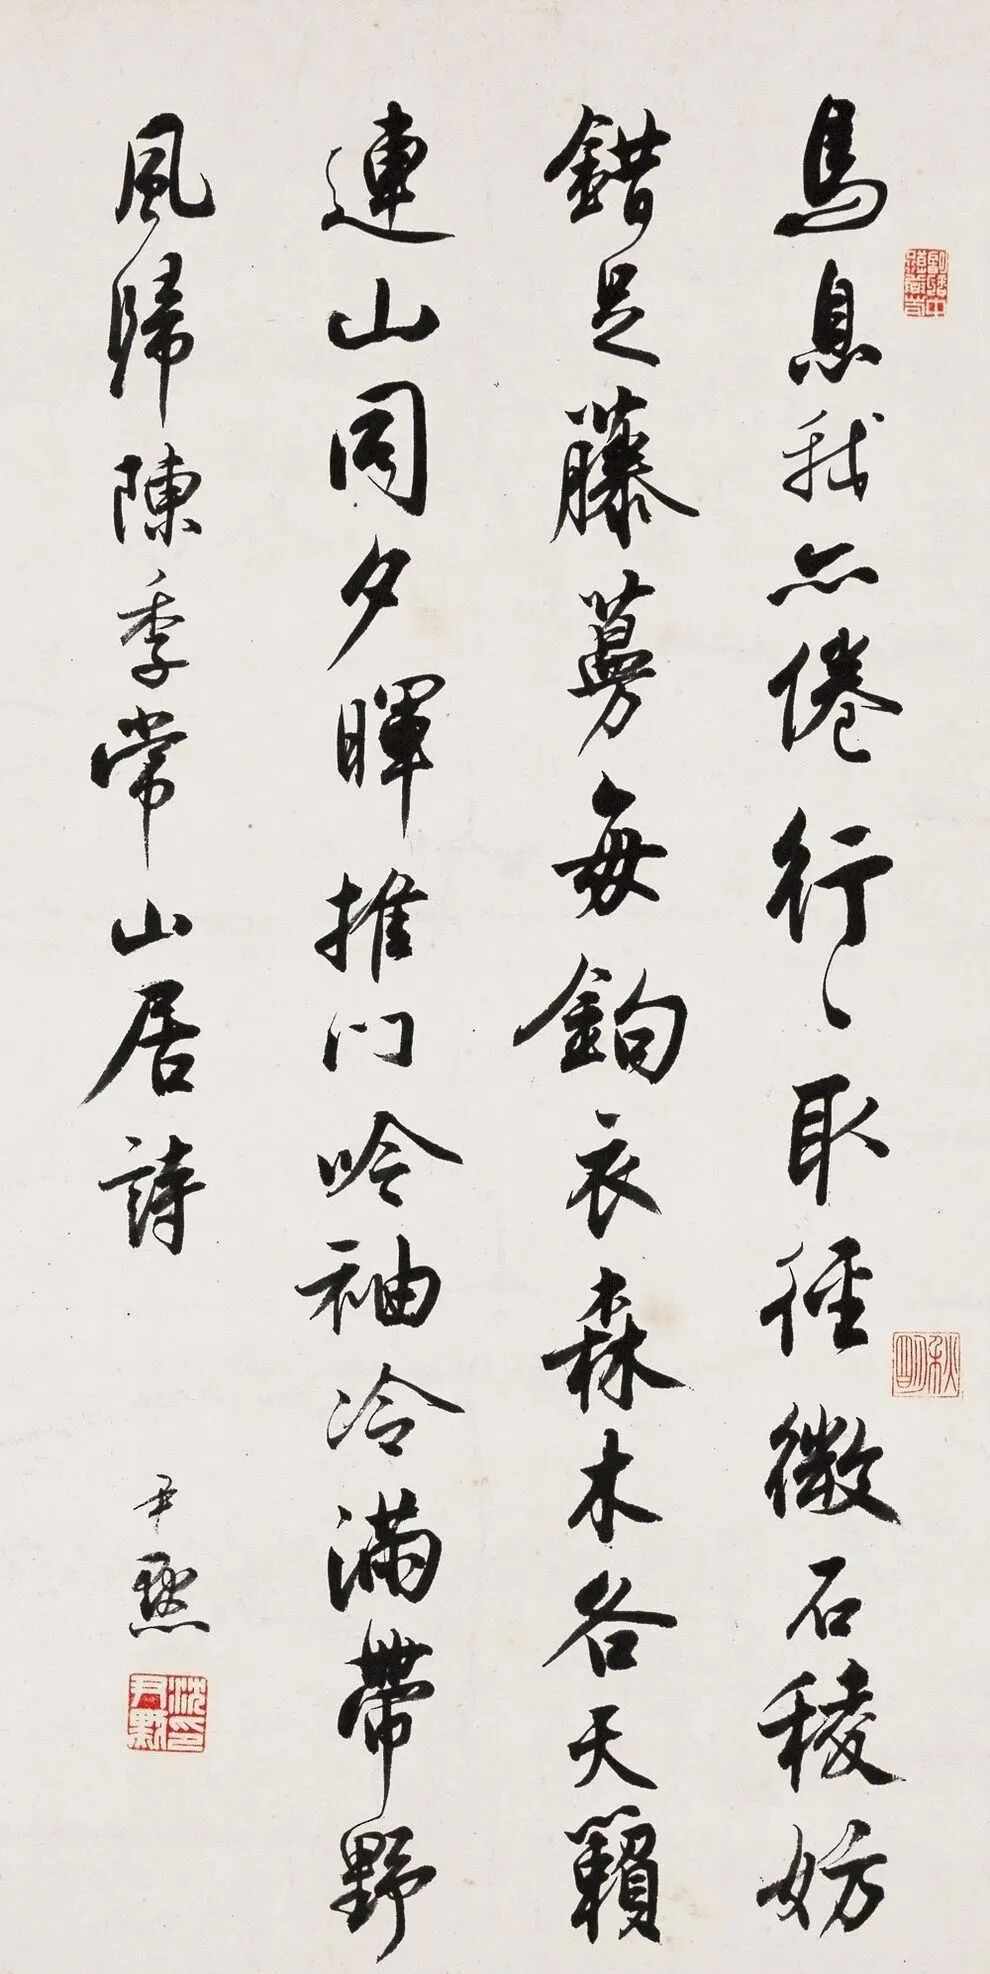 馬息我亦倦行〻取徑微石稜妨
錯足藤蔓每鉤衣森木各天籟
連山同夕暉推門吟袖冷滿帶野
風歸陳季常山居詩
尹默
沈尹默印
秋明